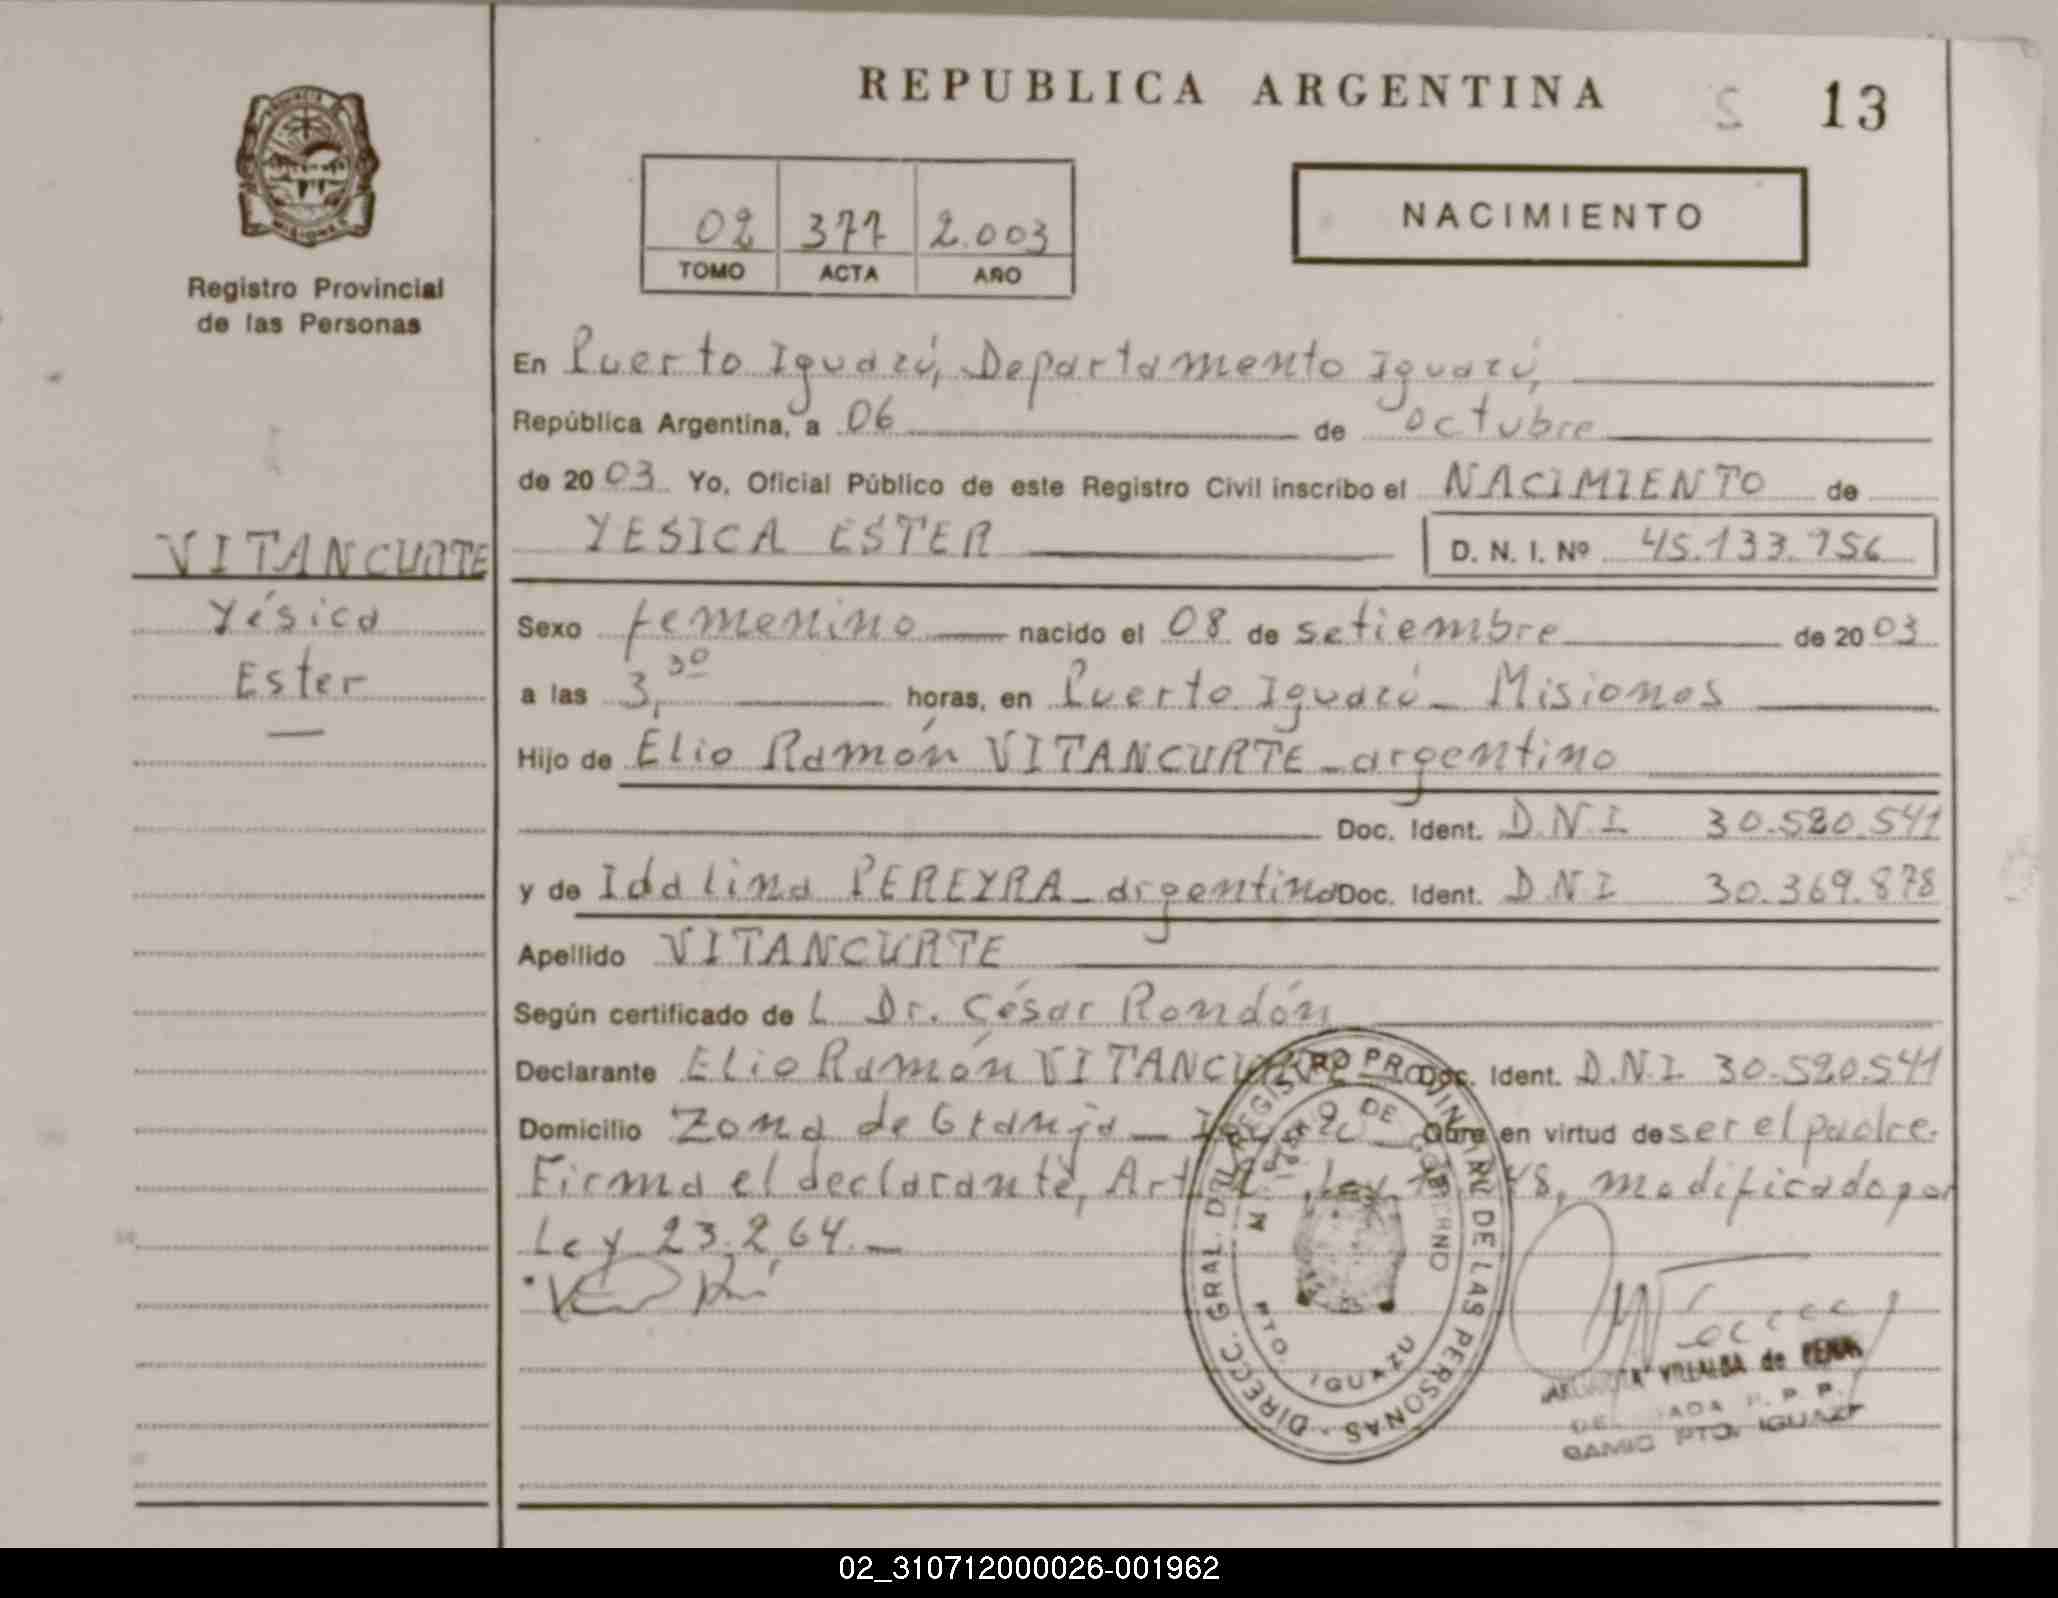 REPUBLICA ARGENTINA 13
Registro Provincial
de las Personas
02 377 2.003
TOMO ACTA AÑO
NACIMIENTO
En Puerto Iguazú, Departamento Iguazú,
República Argentina, a 06 de octubre
de 2003 Yo, Oficial Público de este Registro Civil inscribo el NACIMIENTO de
YESICA ESTER D. N. I. Nº 45.133.756
VITANCURTE
Yésica
Ester
Sexo femenino nacido el 08 de setiembre de 2003
a las 3,30 horas, en Puerto Iguazú - Misiones
Hijo de Elio Ramón VITANCURTE - argentino
Doc. Ident. D.N.I 30.520.541
y de Idalina PEREYRA - argentina Doc. Ident. D.N.I 30.369.878
Apellido VITANCURTE
Según certificado de L Dr. César Rondón
Declarante Elio Ramón VITANCURTE Doc. Ident. D.N.I. 30.520.541
Domicilio Zona de Granja - Obra en virtud de ser el padre.
Firma el declarante, Ley modificado por
Ley 23.264. -
DIRECC. GRAL. DEL REGISTRO PROVINCIAL DE LAS PERSONAS
MINISTERIO DE GOBIERNO
PTO. IGUAZU
VILLALBA de PEÑA
R. P. P.
SAMIC PTO. IGUAZU
02_310712000026-001962